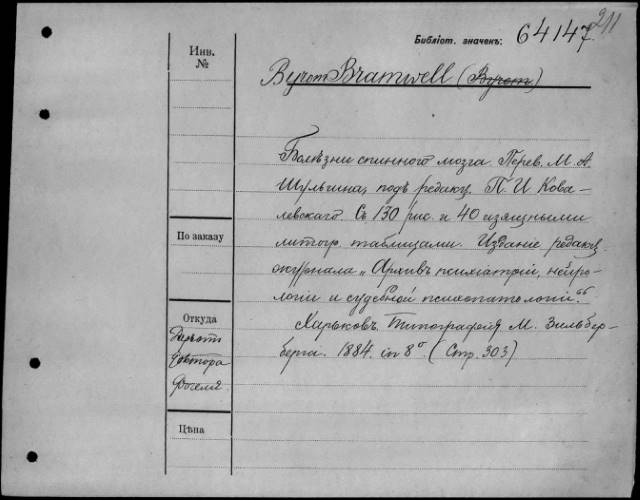 211
Библіот. значекъ: 64147
Инв.
№
Byrom Bramwell (Byrom)
Болѣзни спиннного мозга. Перев. М. А.
Шульгина, подъ редакц. П. И Кова-
левскаго. Съ 130 рис. и 40 изящными
литогр. таблицами. Изданіе редакц.
журнала „Архивъ психіатріи, нейро-
логіи и судебной психопатологіи."
Харьковъ. Типографія М. Зильбер-
берга. 1884. in 8° (Стр. 303)
По заказу
Откуда
доктора
Догеля
Цѣна